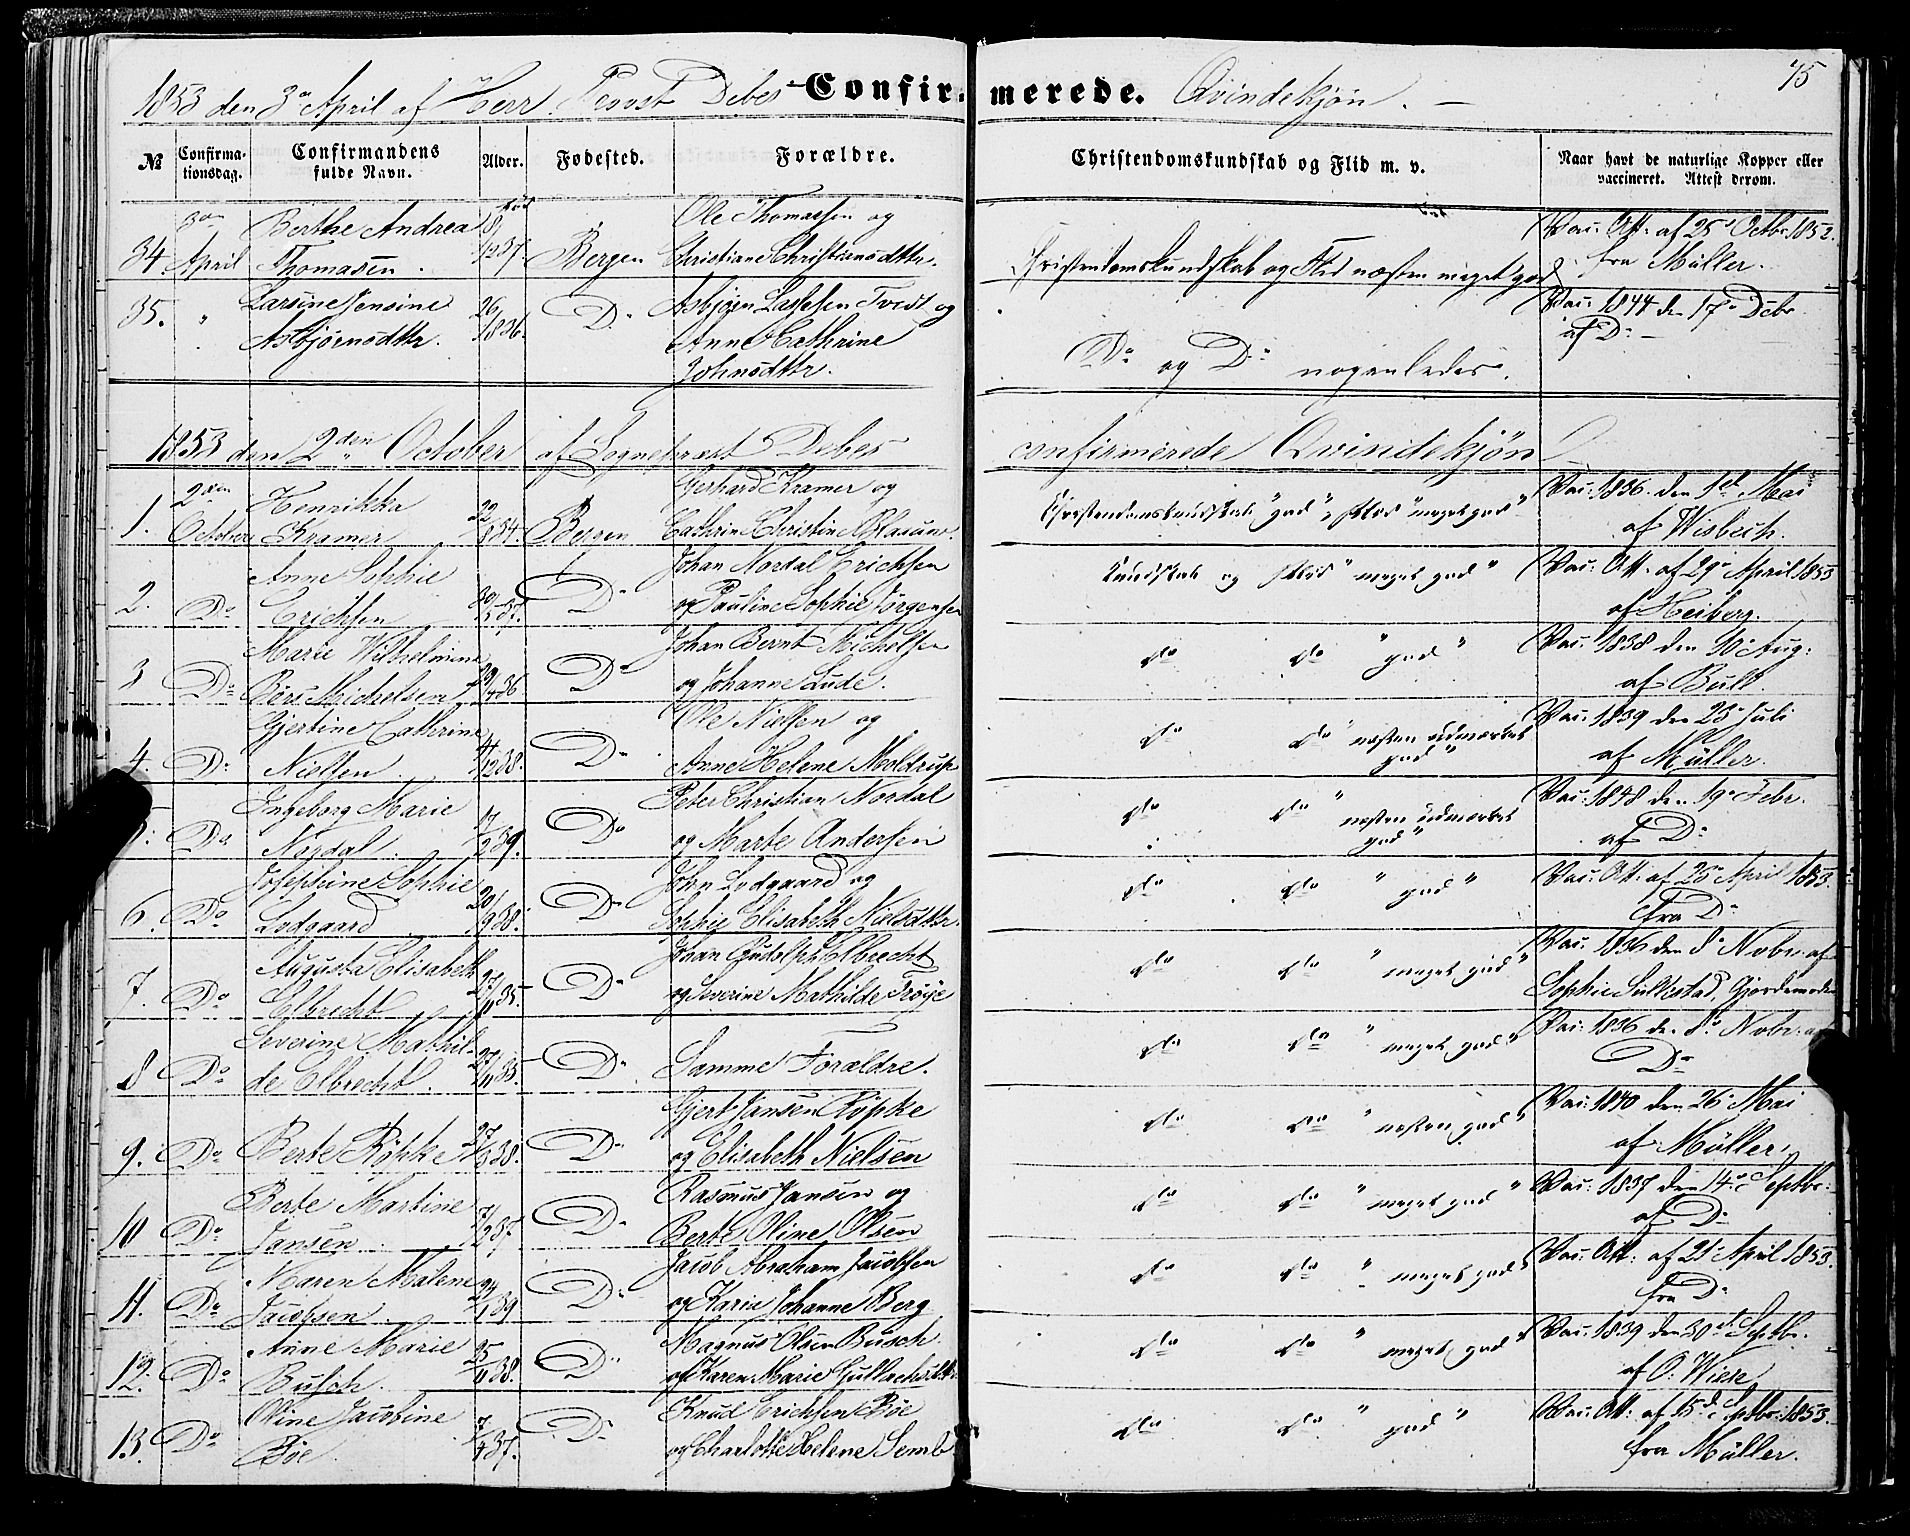 75
1853 den 3die April af Herr Provst Debes Confirmerede. Qvindekjøn. —
№ Confirmationsdag. Confirmandens fulde Navn. Alder. Fødested. Forældre. Christendomskundskab og Flid m. v. Naar havt de naturlige Kopper eller vaccineret. Attest derom.
34 3die April Berthe Andrea Thomasen. 8/12 37. Bergen Ole Thomassen og Christiane Christensdttr. Christendomskundskab og Flid næsten meget god Vac: Att. af 25 Octbr. 1852. fra Müller.
35. " Larsine Jensine Asbjørnsdttr. 26/ 1836. Do Asbjørn Lassesen Tvedt og Anne Cathrine Johnsdttr. Do og Do nogenledes. Vac: 1844 den 17de Debr af Do —
1853 den 2den October af Sogneprest Debes confirmerede Qvindekjøn
1. 2den October Henrikka Kramer 22/ 34. Bergen Gerhard Kramer og Cathrine Christine Christendomskundskab "god", Flid "meget god" Vac: 1836 den 3d Mai af Wisbech.
2. Do Anne Sophie Erichsen 30/5 37. Do Johan Nordal Erichsen og Pauline Sophie Jørgensen Kundskab og Flid "meget god" Vac: Att. af 29 April 1853 af Heiberg.
3 Do Marie Wilhelmine Michelsen 29/4 36. Do Johan Bernt Michelsen og Johanne Lude. do do "god" Vac: 1838 den 10 Aug: af Bull.
4. Do Gjertine Cathrine Nielsen 4/12 38. Do Ole Nielsen og Anne Helene Moldrup do do "næsten udmærket god" Vac: 1839 den 23 Juli af Müller.
5. Do Ingeborg Marie Nordal. 17/2 39. Do Peter Christian Nordal og Marte Andersen do do "næsten udmærket god" Vac: 1848 den 19 Febr. af Do
6. Do Josephine Sophie Lodgaard 20/9 38. Do John Lodgaard og Sophie Elisabeth Nielsdttr. do do "god" Vac: Att. af 25 April 1853. fra Do
7. Do Augusta Elisabeth Elbrecht 27/11 35. Do Johan Elbrecht og Severine Mathilde Trøye do do "meget god" Vac: 1836 den 8 Nobr. af Sophie Sulkstad, Gjordemoder
8 Do Severine Mathilde Elbrecht. 27/11 35. Do Samme Forældre. do do "meget god" Vac: 1836 den 8 Nobr. af Do
9. Do Berte Röpke 27/3 38. Do Gjert Jansen Röpke og Elisabeth Nielsen do do "næsten god" Vac: 1840 den 26 Mai af Müller.
10 Do Berte Martine Jansen 7/2 37 Do Rasmus Jansen og Berte Oline Olsen do do "meget god" Vac: 1837 den 14 Septbr. af Do
11. Do Maren Malene Jacobsen 24/1 39 Do Jacob Abraham Jacobsen og Karie Johanne Berg do do "meget god" Vac: Att. af 21 April 1853. fra Do
12. Do Anne Marie Busch. 25/11 38. Do Magnus Olsen Busch. og Karen Marie do do "meget god" Vac: 1839 den 30 Septbr. af O: Wiese
13. Do Oline Jacobine Böe 7/4 37. Do Knud Erichsen Böe og Charlotte Helene Semb do do "god" Vac: Att. af 15de Septbr. 1853. fra Müller.